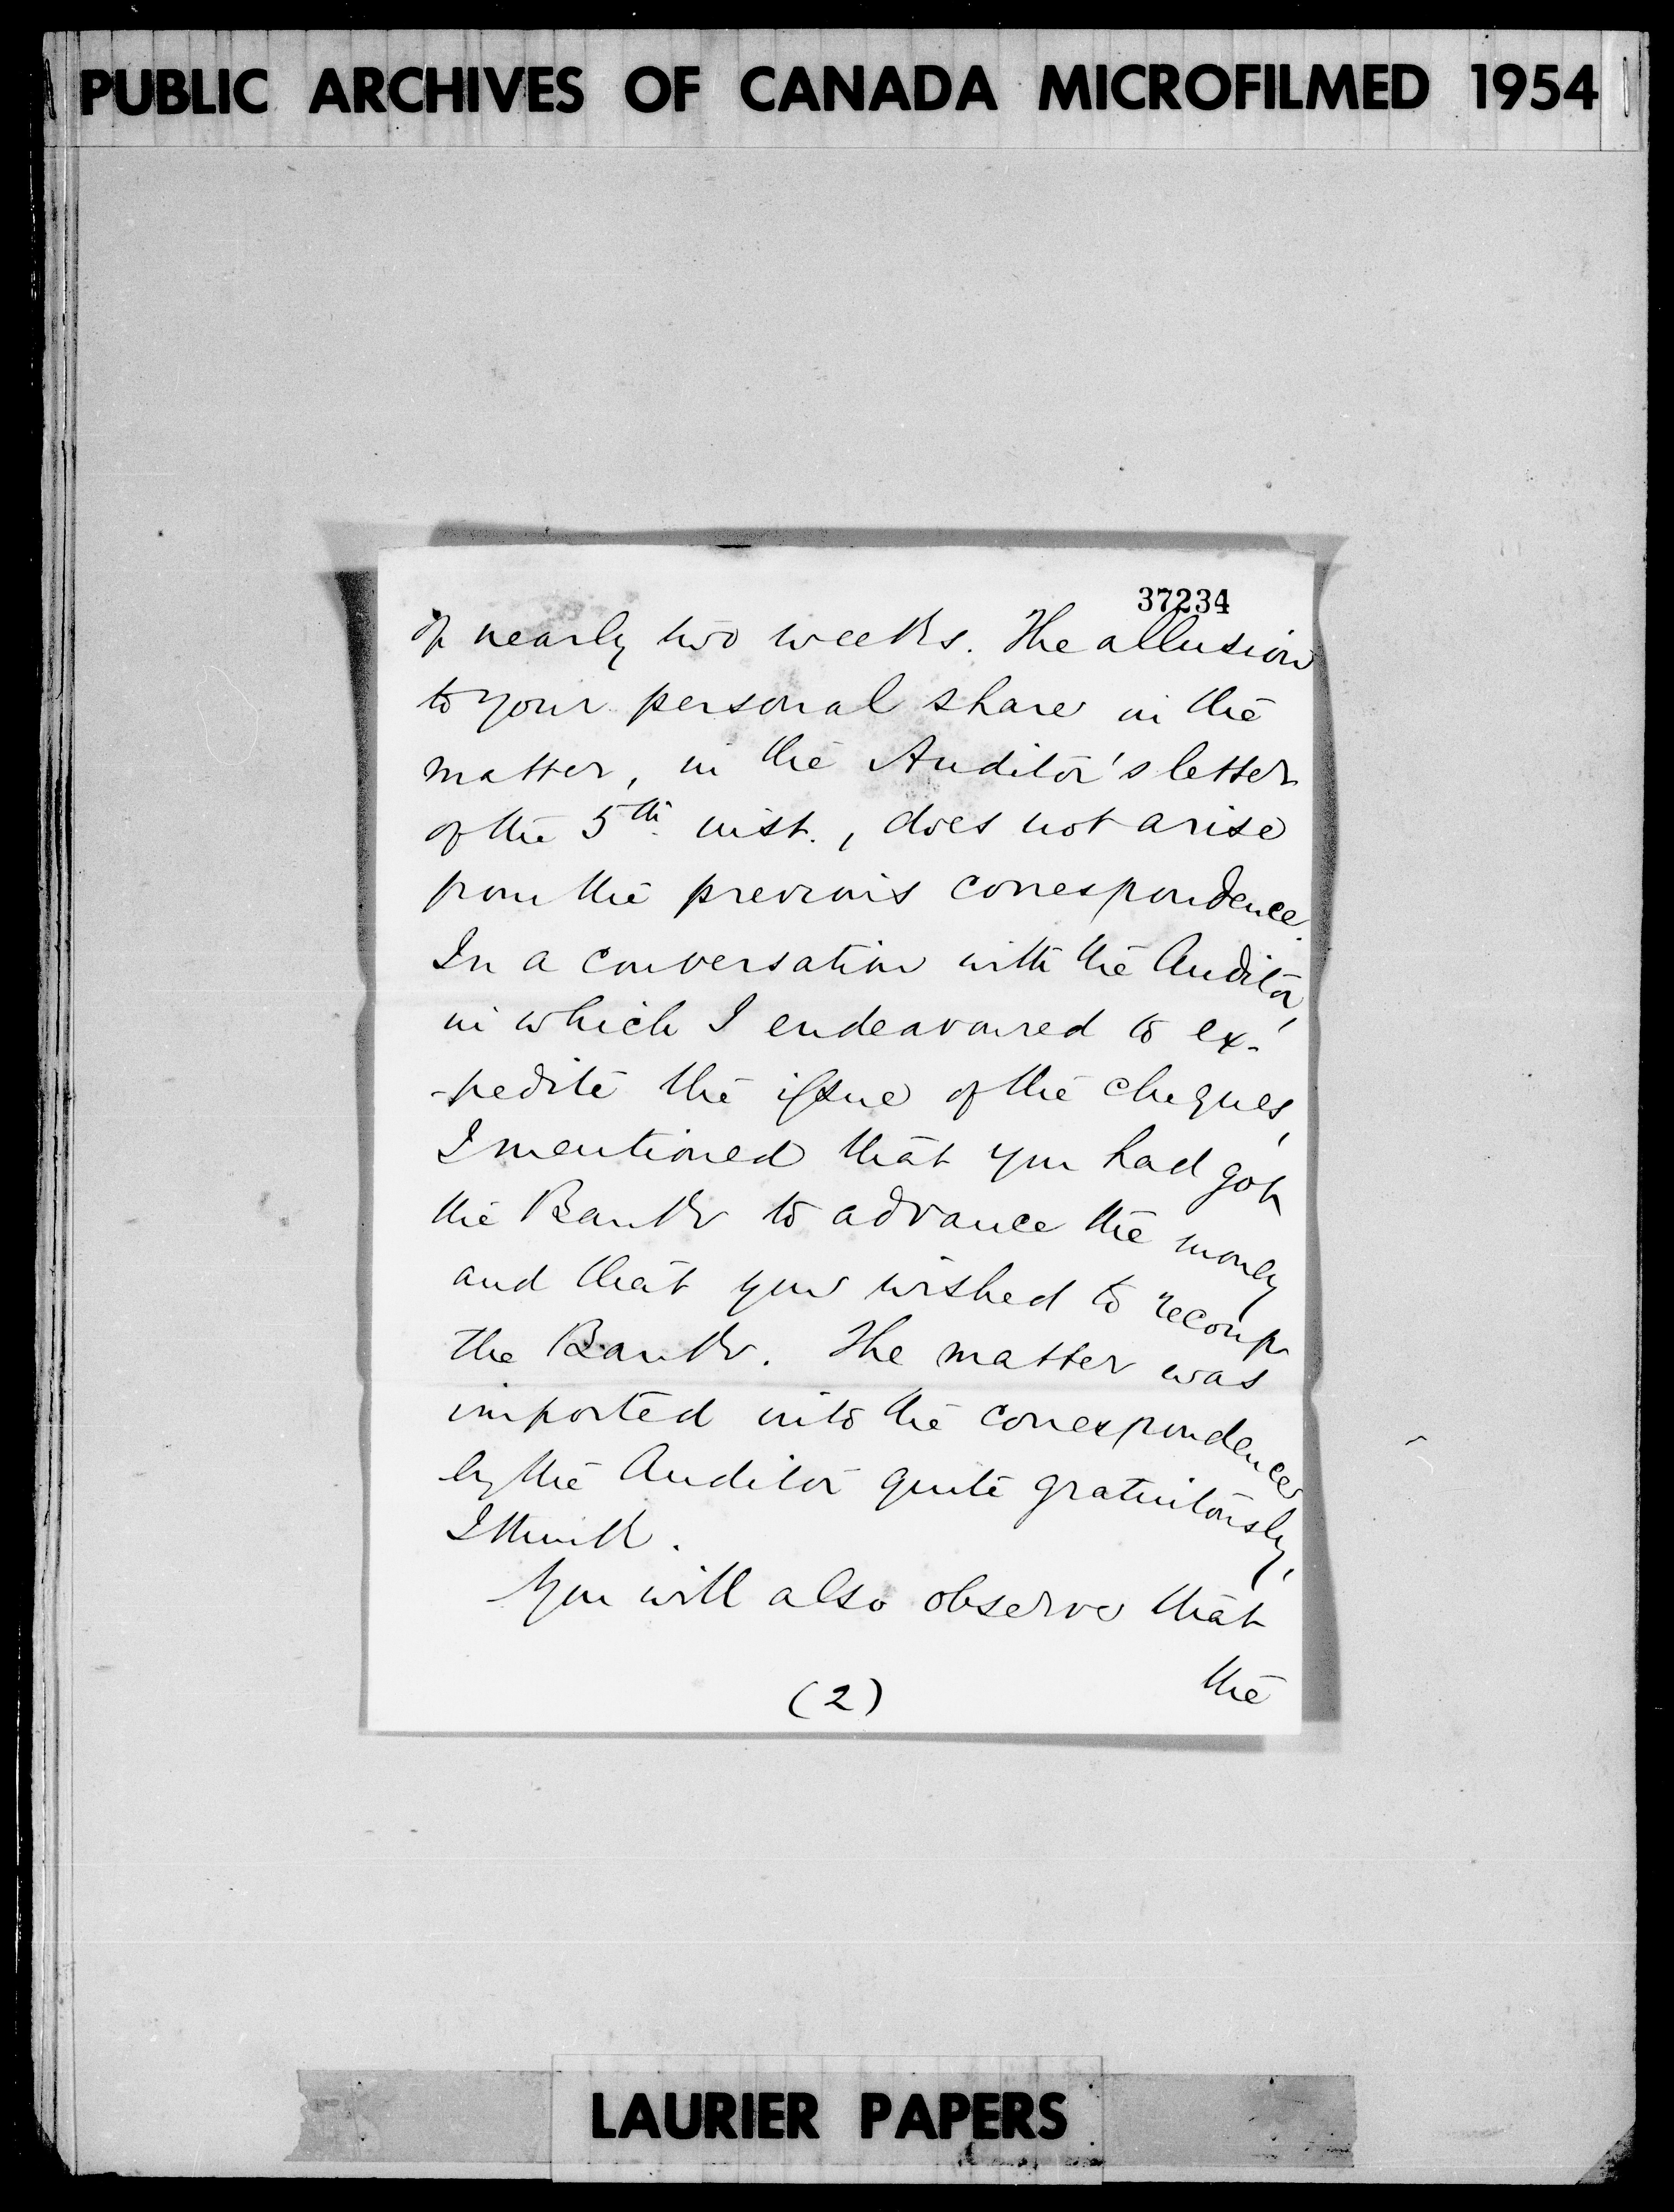 PUBLIC ARCHIVES OF CANADA MICROFILMED 1954
37234
of nearly two weeks. The allusion
to your personal share in the
matter, in the Auditor's letter
of the 5th inst., does not arise
from the previous correspondence.
In a conversation with the Auditor,
in which I endeavoured to ex-
-pedite the issue of the cheques,
I mentioned that you had got
the Bank to advance the money
and that you wished to recoup
the Bank. The matter was
imported into the correspondence
by the Auditor quite gratuitously,
I think.
You will also observe that
the
(2)
LAURIER PAPERS